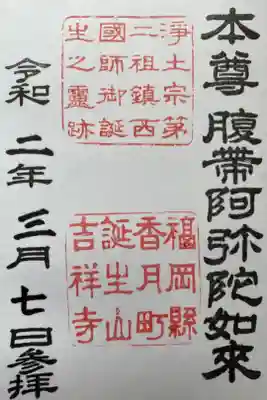 本尊 腹帯阿弥陀如來
淨土宗第
二祖鎮西
國師御誕
生之靈跡
福岡縣
香月町
誕生山
吉祥寺
令和 二年 三月 七日参拝